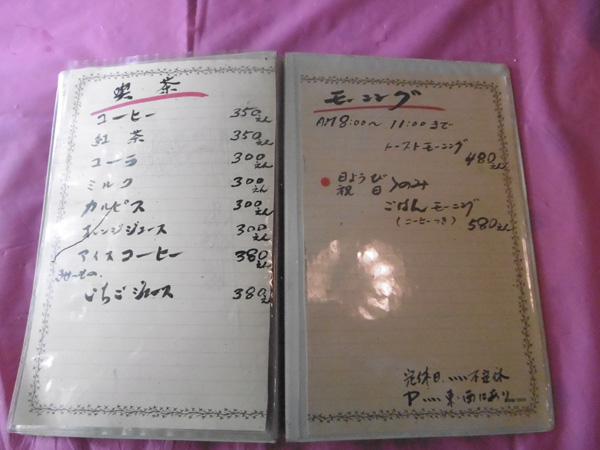 喫茶
コーヒー 350えん
紅茶 350えん
コーラ 300えん
ミルク 300えん
カルピス 300えん
オレンジジュース 300えん
アイスコーヒー 380えん
いちごジュース 380えん
モーニング
AM8:00〜11:00まで
トーストモーニング
480えん
日ようび
祝日 〉のみ
ごはんモーニング
(コーヒーつき) 580えん
定休日.....不定休
P.....東・西にあり